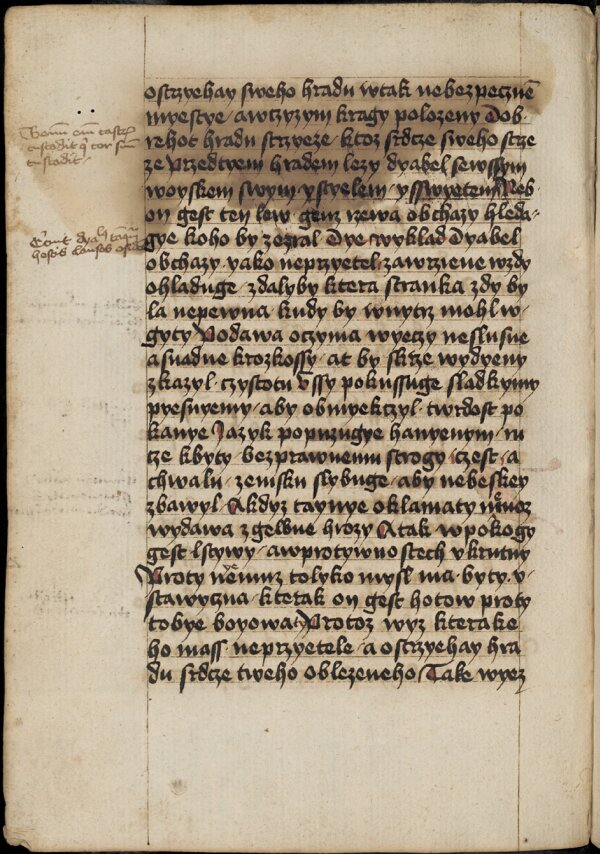 ostrzyehay sweho hradu wtak nebezpecznē
myestye · awczyzym kragy polozeny Dob-
rehot hradu strzyeze · ktoz srdcze sweho strze
ze przedtyem hradem lezy dyabel sewssym
woyskem swym · ystrzelem · ysswyetem Neb-
on gest ten lew · genz rzewa obchazy hleda-
gye koho by zezral Dye wyklad Dyabel
obchazy · yako neprzyetel · zawrziene wzdy
ohladuge · zdalyby ktera stranka zdy by
la nepewna · kudy by wnytrz mohl w-
gyty Podawa oczyma wyeczy neslusne
asnadne krozkossy · at by skrze wydyeny
zkazyl · czystotu Vssy pokussuge sladkymy
pyesnyemy · aby obmyekczyl · twrdost po
kanye Jazyk popuzugye hanyenym · ru
cze kbyty · bezprawnemu strogy · czest · a
chwalu · zemsku slybuge · aby nebeskey
zbawyl · Akdyz taynye oklamaty nemoz
wydawa zgelwne hrozy Atak · wpokogy
gest lstywy · awprotywnostech vkrutny
Proty nemuz tolyko mysl ma · byty · v-
stawyczna · kterak on gest hotow proty
tobye boyowa Protoz wyz kterake
ho mass · neprzyetele · a ostrzyehay hra
du srdcze tweho oblezeneho Take wyez